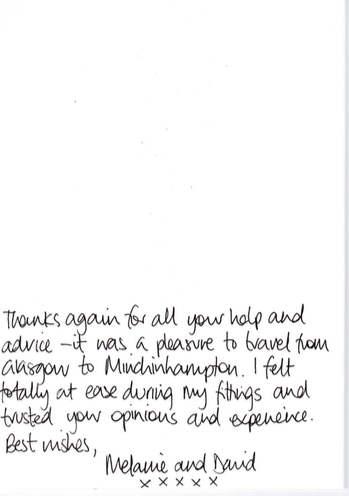 Thanks again for all your help and
advice – it was a pleasure to travel from
Glasgow to Minchinhampton. I felt
totally at ease during my fittings and
trusted your opinions and experience.
Best wishes,
Melanie and David
x x x x x